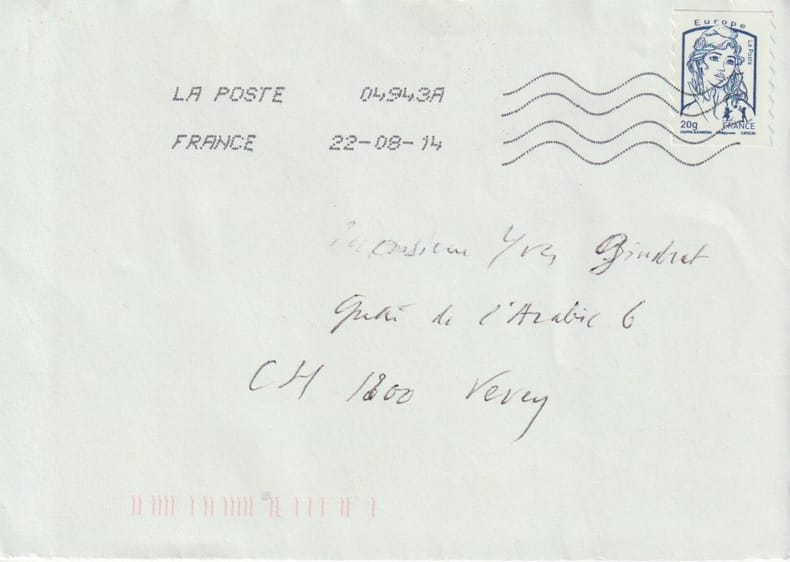 Europe
La Poste
20g FRANCE
LA POSTE 04943A
FRANCE 22-08-14
Monsieur Yves Bindrat
Quai de l'Arabie 6
CH 1800 Vevey